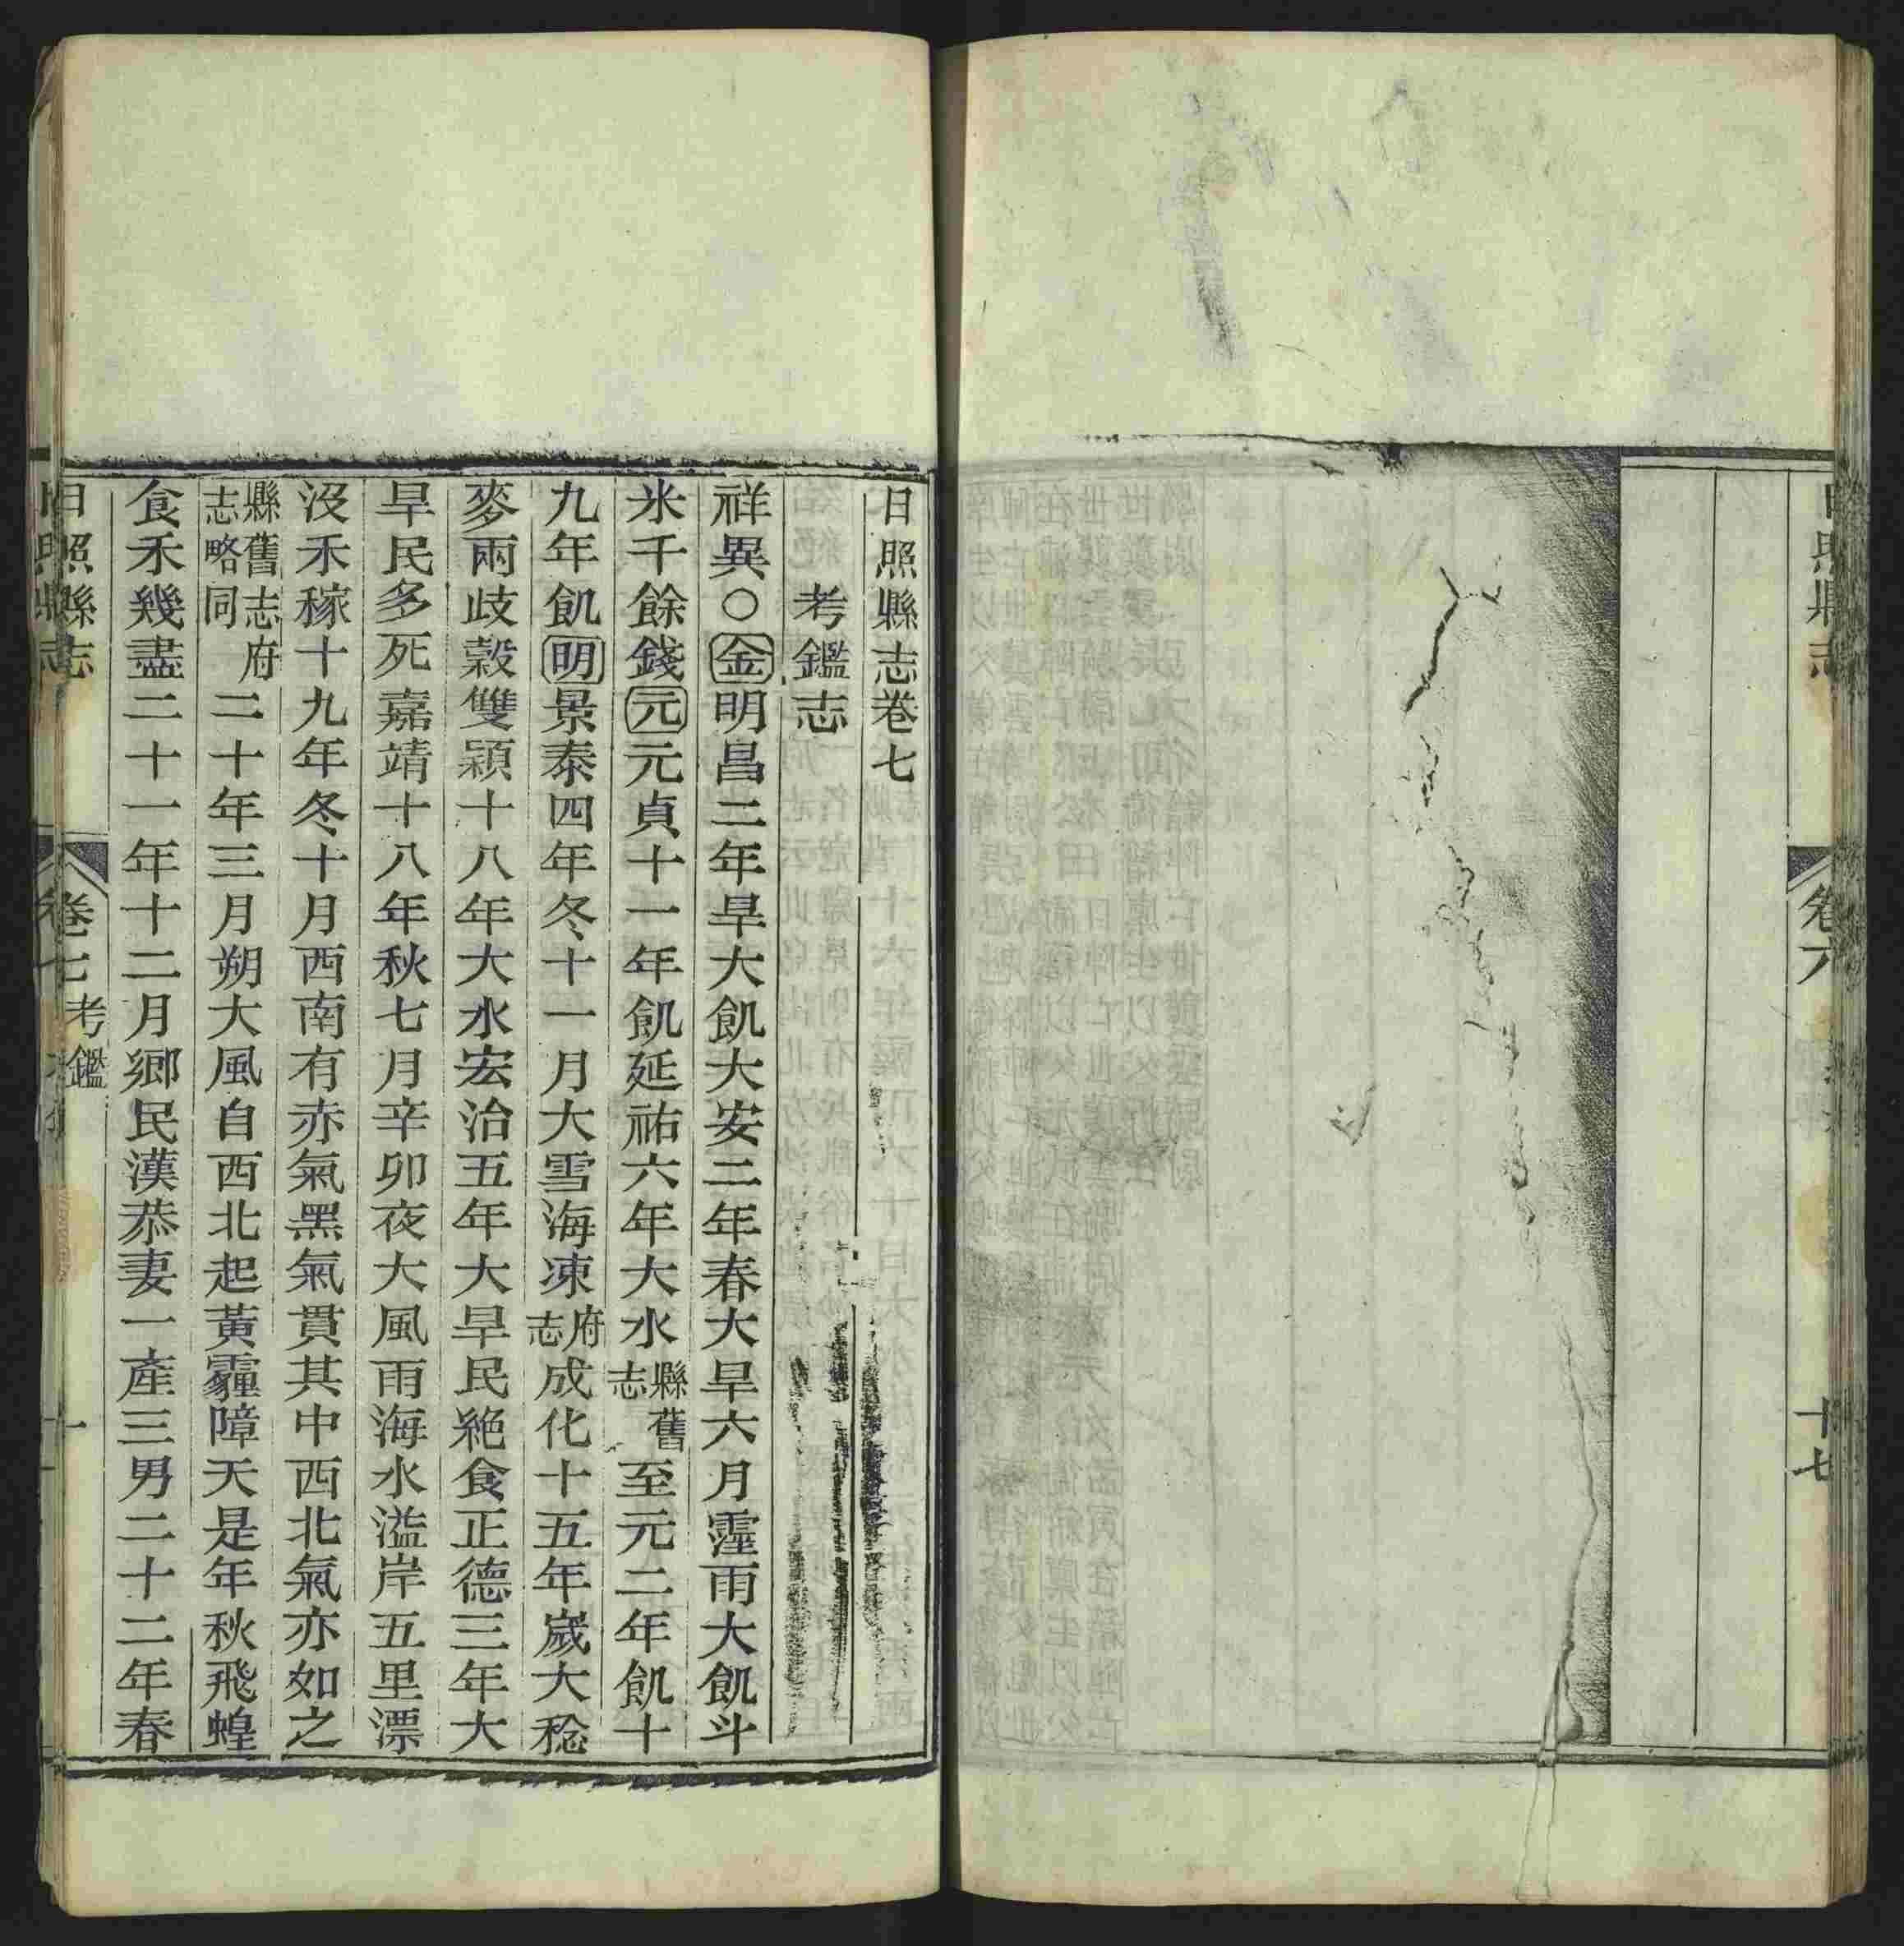 日照縣志
卷六
十七
日照縣志卷七
考鑑志
祥異○金明昌二年旱大飢大安二年春大旱六月霪雨大飢斗
米千餘錢元元貞十一年飢延祐六年大水縣舊志至元二年飢十
九年飢明景泰四年冬十一月大雪海凍府志成化十五年歲大稔
麥兩歧穀雙穎十八年大水宏治五年大旱民絶食正德三年大
旱民多死嘉靖十八年秋七月辛卯夜大風雨海水溢岸五里漂
沒禾稼十九年冬十月西南有赤氣黑氣貫其中西北氣亦如之
縣舊志府志略同二十年三月朔大風自西北起黃霾障天是年秋飛蝗
食禾幾盡二十一年十二月鄉民漢恭妻一產三男二十二年春
日照縣志
卷七
考鑑
一